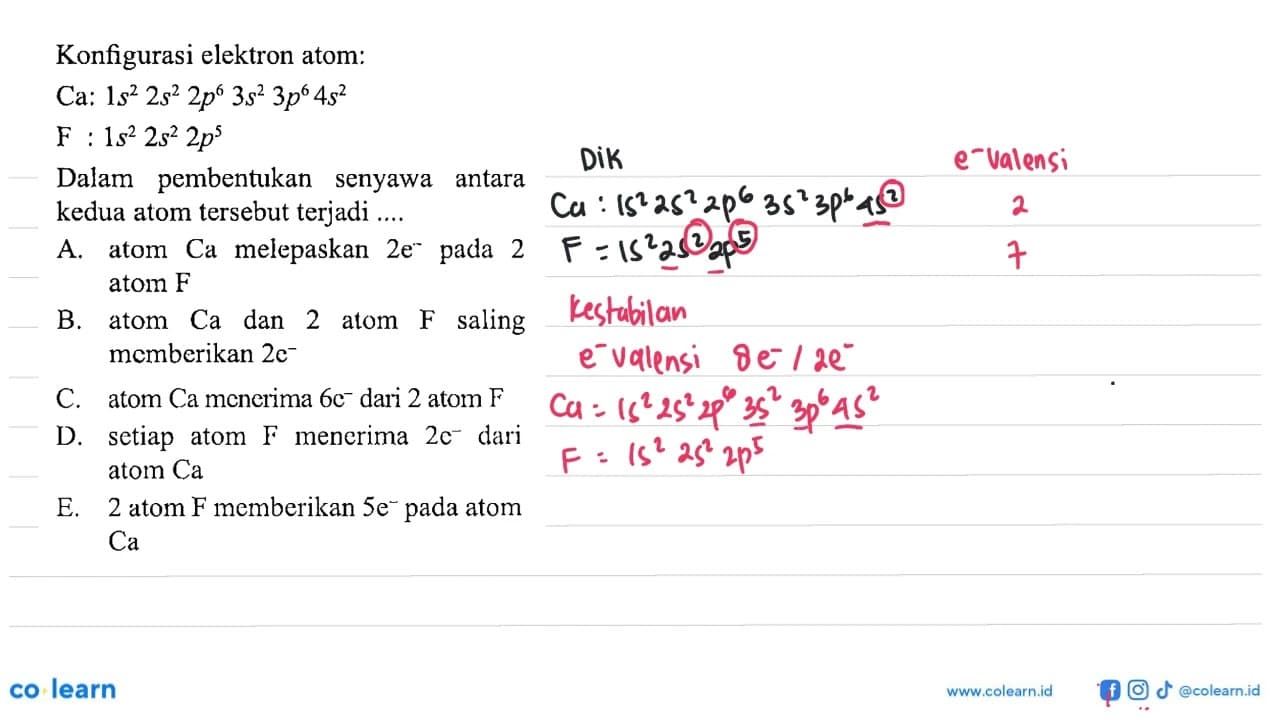 Konfigurasi elektron atom:
Ca: 1s² 2s² 2p⁶ 3s² 3p⁶ 4s²
F : 1s² 2s² 2p⁵
Dalam pembentukan senyawa antara
kedua atom tersebut terjadi ....
A. atom Ca melepaskan 2e⁻ pada 2
atom F
B. atom Ca dan 2 atom F saling
memberikan 2e⁻
C. atom Ca menerima 6e⁻ dari 2 atom F
D. setiap atom F menerima 2e⁻ dari
atom Ca
E. 2 atom F memberikan 5e⁻ pada atom
Ca
Dik e⁻ valensi
Ca : 1s² 2s² 2p⁶ 3s² 3p⁶ 4s² 2
F = 1s² 2s² 2p⁵ 7
kestabilan
e⁻ valensi 8e⁻ / 2e⁻
Ca = 1s² 2s² 2p⁶ 3s² 3p⁶ 4s²
F = 1s² 2s² 2p⁵
co learn
www.colearn.id
@colearn.id